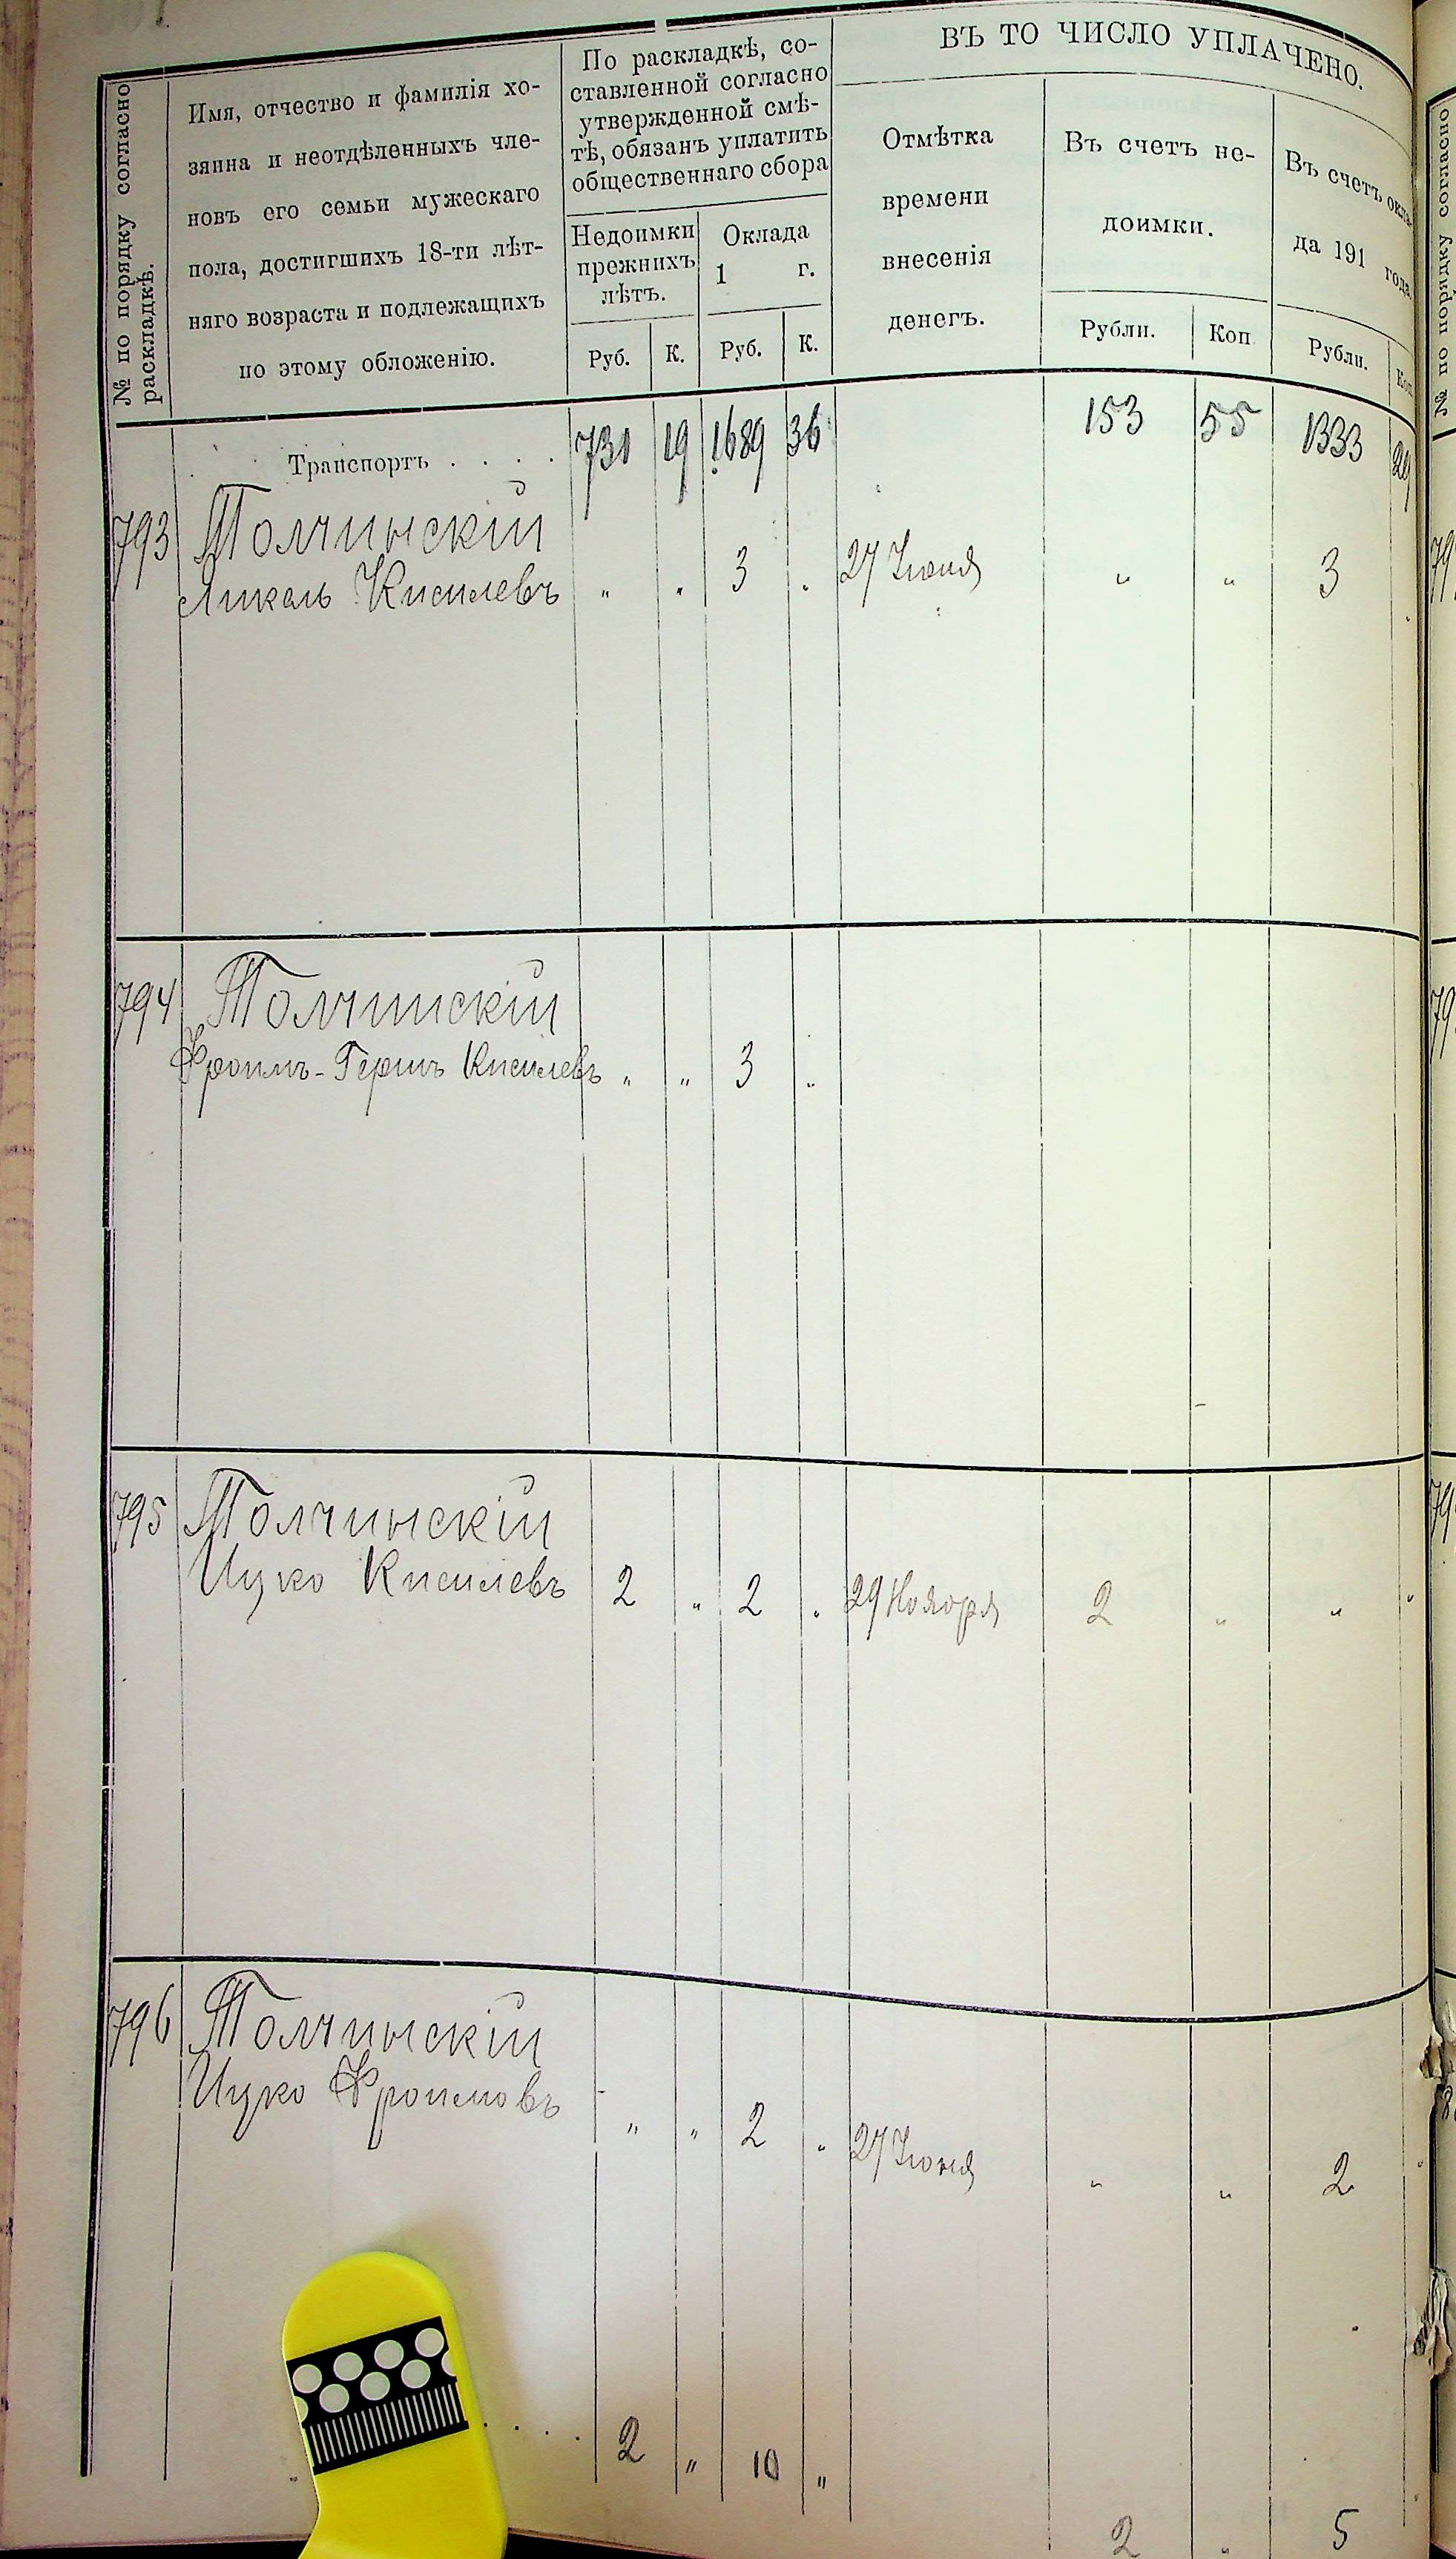 № по порядку согласно
раскладкѣ.
Имя, отчество и фамилія хо-
зяина и неотдѣленныхъ чле-
новъ его семьи мужескаго
пола, достигшихъ 18-ти лѣт-
няго возраста и подлежащихъ
по этому обложенію.
По раскладкѣ, со-
ставленной согласно
утвержденной смѣ-
тѣ, обязанъ уплатить
общественнаго сбора
Недоимки
прежнихъ
лѣтъ.
Оклада
1 г.
Руб. К. Руб. К.
ВЪ ТО ЧИСЛО УПЛАЧЕНО.
Отмѣтка
времени
внесенія
денегъ.
Въ счетъ не-
доимки.
Рубли. Коп
Въ счетъ окла-
да 191 года
Рубли. Коп
Транспортъ . . . . 731 19 1689 36 153 55 1333 29
793 Толчинскій
Микель Кисилевъ " " 3 " 27 Іюня " " 3
794 Толчинскій
Фроимъ-Гершъ Кисилевъ " " 3 "
795 Толчинскій
Ицко Кисилевъ 2 " 2 " 29 Ноября 2 " " "
796 Толчинскій
Ицко Фроимовъ " " 2 " 27 Іюня " " 2
. . . . 2 " 10 "
2 " 5
№ по порядку согласно